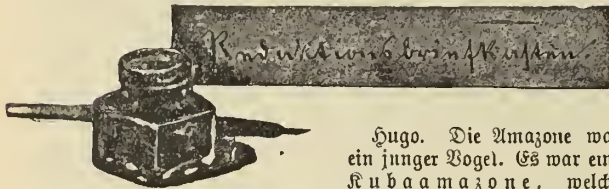 Redaktionsbriefkasten
Hugo. Die Amazone wa
ein junger Vogel. Es war ein
Kubaamazone, welch